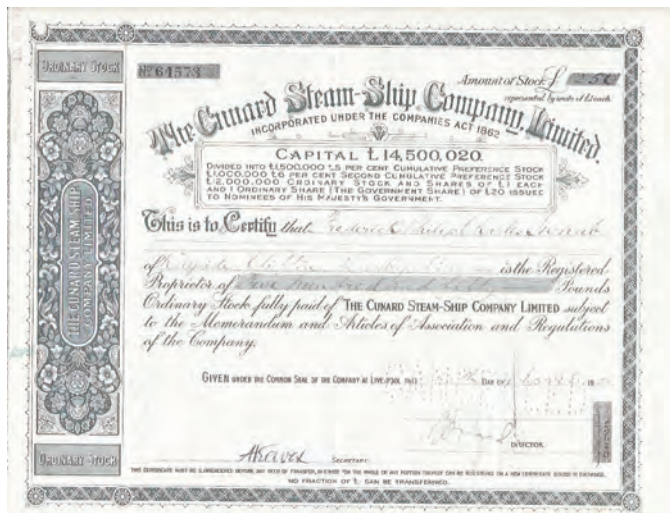 ORDINARY STOCK
No 64573
Amount of Stock £ 250
represented by units of £1 each.
The Cunard Steam-Ship Company, Limited.
INCORPORATED UNDER THE COMPANIES ACT 1862
CAPITAL £14,500,020.
DIVIDED INTO £1,500,000 £5 PER CENT CUMULATIVE PREFERENCE STOCK
£1,000,000 £6 PER CENT SECOND CUMULATIVE PREFERENCE STOCK
£12,000,000 ORDINARY STOCK AND SHARES OF £1 EACH
AND 1 ORDINARY SHARE (THE GOVERNMENT SHARE) OF £20 ISSUED
TO NOMINEES OF HIS MAJESTY'S GOVERNMENT.
This is to Certify that Frederick
of is the Registered
Proprietor of hundred and fifty Pounds
Ordinary Stock fully paid of THE CUNARD STEAM-SHIP COMPANY LIMITED subject
to the Memorandum and Articles of Association and Regulations
of the Company.
GIVEN UNDER THE COMMON SEAL OF THE COMPANY AT LIVERPOOL THIS DAY OF 19
DIRECTOR.
SECRETARY.
THIS CERTIFICATE MUST BE SURRENDERED BEFORE ANY DEED OF TRANSFER, WHETHER FOR THE WHOLE OR ANY PORTION THEREOF CAN BE REGISTERED OR A NEW CERTIFICATE ISSUED IN EXCHANGE.
NO FRACTION OF £1 CAN BE TRANSFERRED.
THE CUNARD STEAM SHIP
COMPANY LIMITED
ORDINARY STOCK